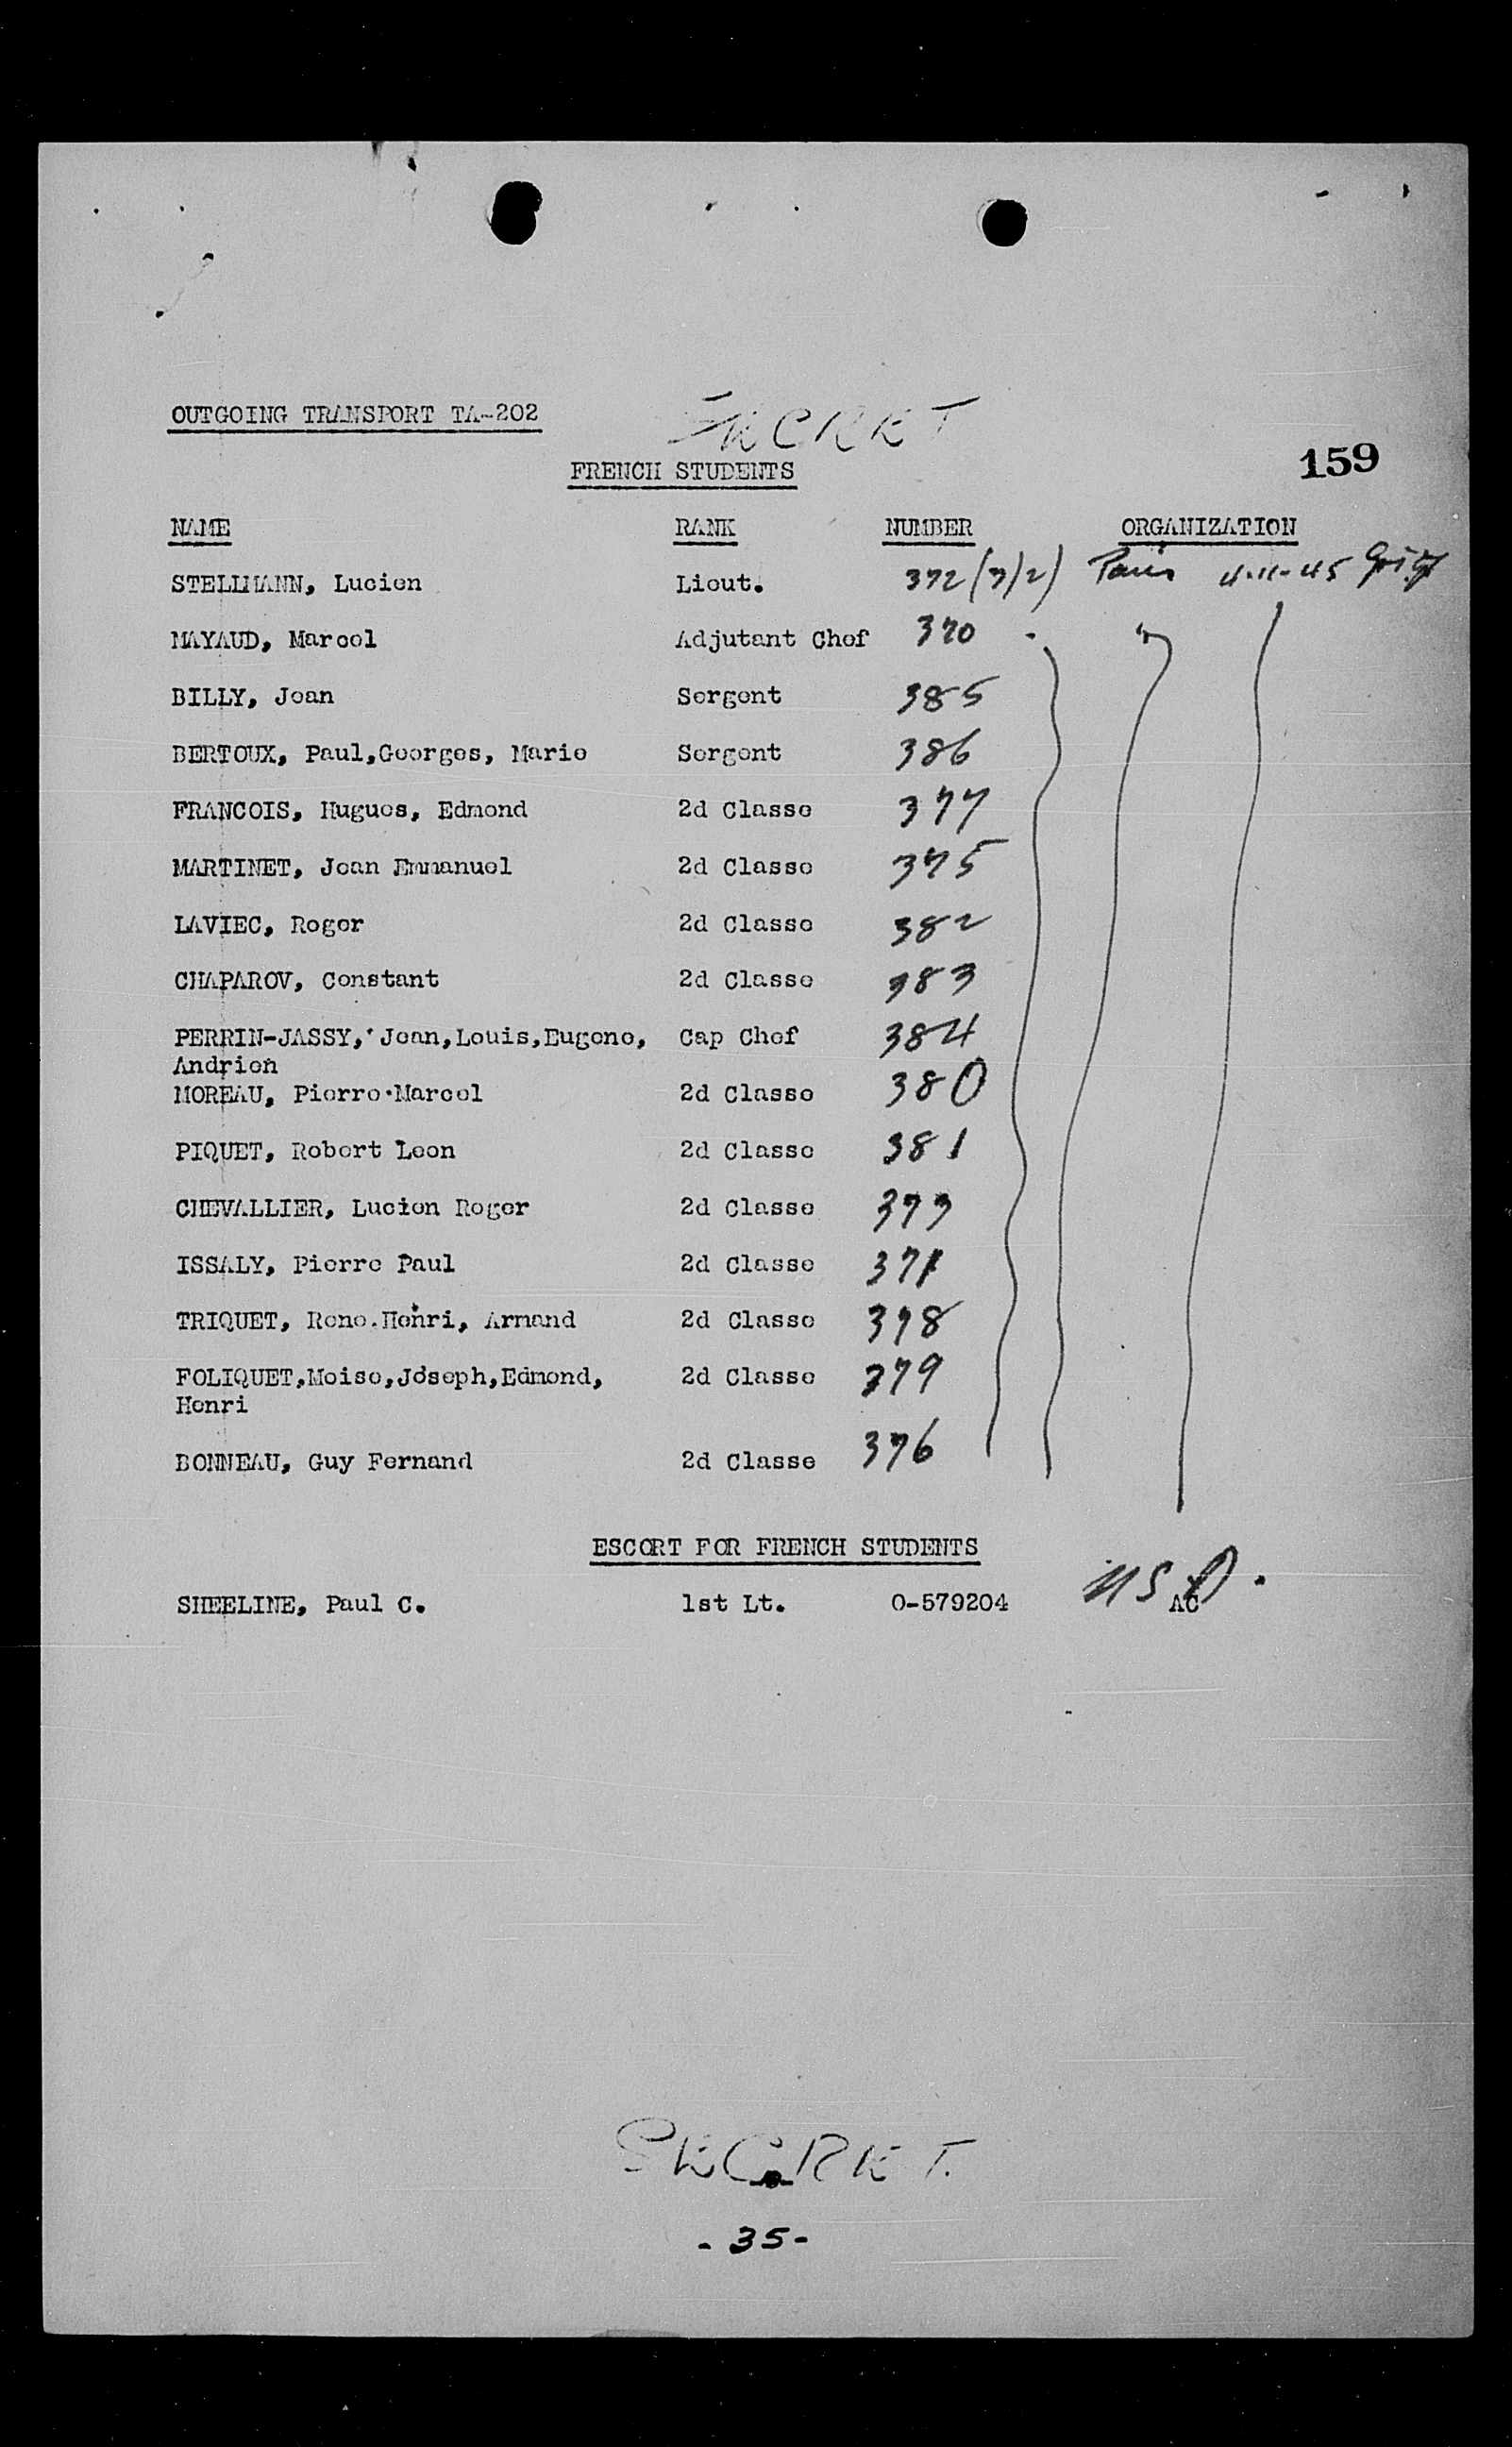 OUTGOING TRANSPORT TA-202
SECRET
FRENCH STUDENTS
159
NAME RANK NUMBER ORGANIZATION
STELLMANN, Lucien Lieut. 372 (3/2) Paris 4-11-45
MAYAUD, Marcel Adjutant Chef 370 "
BILLY, Jean Sergent 385
BERTOUX, Paul,Georges, Marie Sergent 386
FRANCOIS, Hugues, Edmond 2d Classe 377
MARTINET, Jean Emmanuel 2d Classe 375
LAVIEC, Roger 2d Classe 382
CHAPAROV, Constant 2d Classe 383
PERRIN-JASSY, Jean,Louis,Eugene, Cap Chef 384
Andrien
MOREAU, Pierre Marcel 2d Classe 380
PIQUET, Robert Leon 2d Classe 381
CHEVALLIER, Lucien Roger 2d Classe 373
ISSALY, Pierre Paul 2d Classe 371
TRIQUET, Rene.Henri, Armand 2d Classe 378
FOLIQUET,Moise,Joseph,Edmond, 2d Classe 379
Henri
BONNEAU, Guy Fernand 2d Classe 376
ESCORT FOR FRENCH STUDENTS
SHEELINE, Paul C. 1st Lt. 0-579204 AC
SECRET.
- 35 -